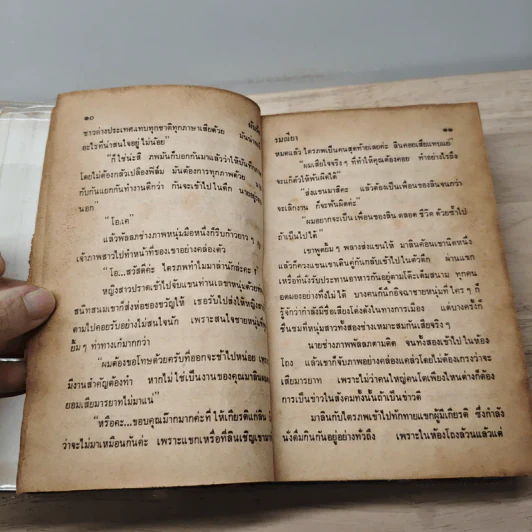 ๑๐
ชาวต่างประเทศแทบทุกชาติทุกภาษาเสียด้วย
อะไรที่น่าสนใจอยู่ไม่น้อย"
"ก็ใช่น่ะสี ภพมันก็บอกกันมาแล้วว่าให้บันทึก
โดยไม่ต้องกลัวเปลืองฟิล์ม มันต้องการทุกภาพด้วย
กับกันแยกกันทำงานดีกว่า กันจะเข้าไปในตึก
นอก"
"โอ.เค"
แล้วพัลลภช่างภาพหนุ่มมือหนึ่งก็รีบก้าวยาว ๆ
เจ้าภาพสาวไปทำหน้าที่ของเขาอย่างคล่องตัว
"โอ...สวัสดีค่ะ ไตรภพทำไมมาล่านักล่ะคะ
หญิงสาวปราดเข้าไปจับแขนท่านเลขาหนุ่มด้วย
สนิทสนมเขาก็ส่งห่อของขวัญให้ เธอรับไปส่งให้หญิง
ตามไปคอยรับอย่างไม่สนใจนัก เพราะสนใจชายหนุ่ม
ยิ้ม ๆ ท่าทางเก้มากกว่า
"ผมต้องขอโทษด้วยครับที่ออกจะช้าไปหน่อย
มีงานสำคัญต้องทำ หากไม่ใช่เป็นงานของคุณมาลิน
ยอมเสียมารยาทไม่มาแน่"
"หรือคะ...ขอบคุณม๊ากมากค่ะที่ให้เกียรติแก่ลิน
ว่าจะไม่มาเหมือนกันค่ะ เพราะแขกเหรื่อที่ลินเชิญเขา
รมณียา
๑๑
หมดแล้ว ไตรภพเป็นคนสุดท้ายเลยค่ะ ลินคอยเสียแทบแย่"
"ผมเสียใจจริง ๆ ที่ทำให้คุณต้องคอย ทำอย่างไรถึง
จะแก้ตัวให้พ้นผิดได้"
"ส่งแขนมาสิคะ แล้วต้องเป็นเพื่อนของลินจนกว่า
จะเลิกงาน ก็จะพ้นผิดค่ะ"
"ผมอยากจะเป็นเพื่อนของลินตลอดชีวิตด้วยซ้ำไป
ถ้าเป็นไปได้"
เขาพูดยิ้ม ๆ พลางส่งแขนให้ มาลินค้อนเขานิดหนึ่ง
แล้วก็ควงแขนเขาเดินคู่กันกลับเข้าไปในตัวตึก ผ่านแขก
เหรื่อที่นั่งรับประทานอาหารกันอยู่ตามโต๊ะเต็มสนาม ทุกคน
อดมองอย่างทึ่งไม่ได้ บางคนก็นึกอิจฉาชายหนุ่มที่ใคร ๆ ก็
รู้จักว่ากำลังมีชื่อเสียงโด่งดังในทางการเมือง แต่บางครั้งก็
ชื่นชมที่หนุ่มสาวทั้งสองช่างเหมาะสมกันเสียจริง ๆ
นายช่างภาพพัลลภตามติด จนทั้งสองเข้าไปในห้อง
โถง แล้วเขาก็จับภาพอย่างคล่องแคล่วโดยไม่ต้องเกรงว่าจะ
เสียมารยาท เพราะไม่ว่าคนใหญ่คนโตเพียงไหนต่างก็ต้อง
การเป็นข่าวในสังคมทั้งนั้นถ้าเป็นข่าวดี
มาลินกับไตรภพเข้าไปทักทายแขกผู้มีเกียรติ ซึ่งกำลัง
นั่งดื่มกินกันอยู่อย่างทั่วถึง เพราะในห้องโถงล้วนแล้วแต่